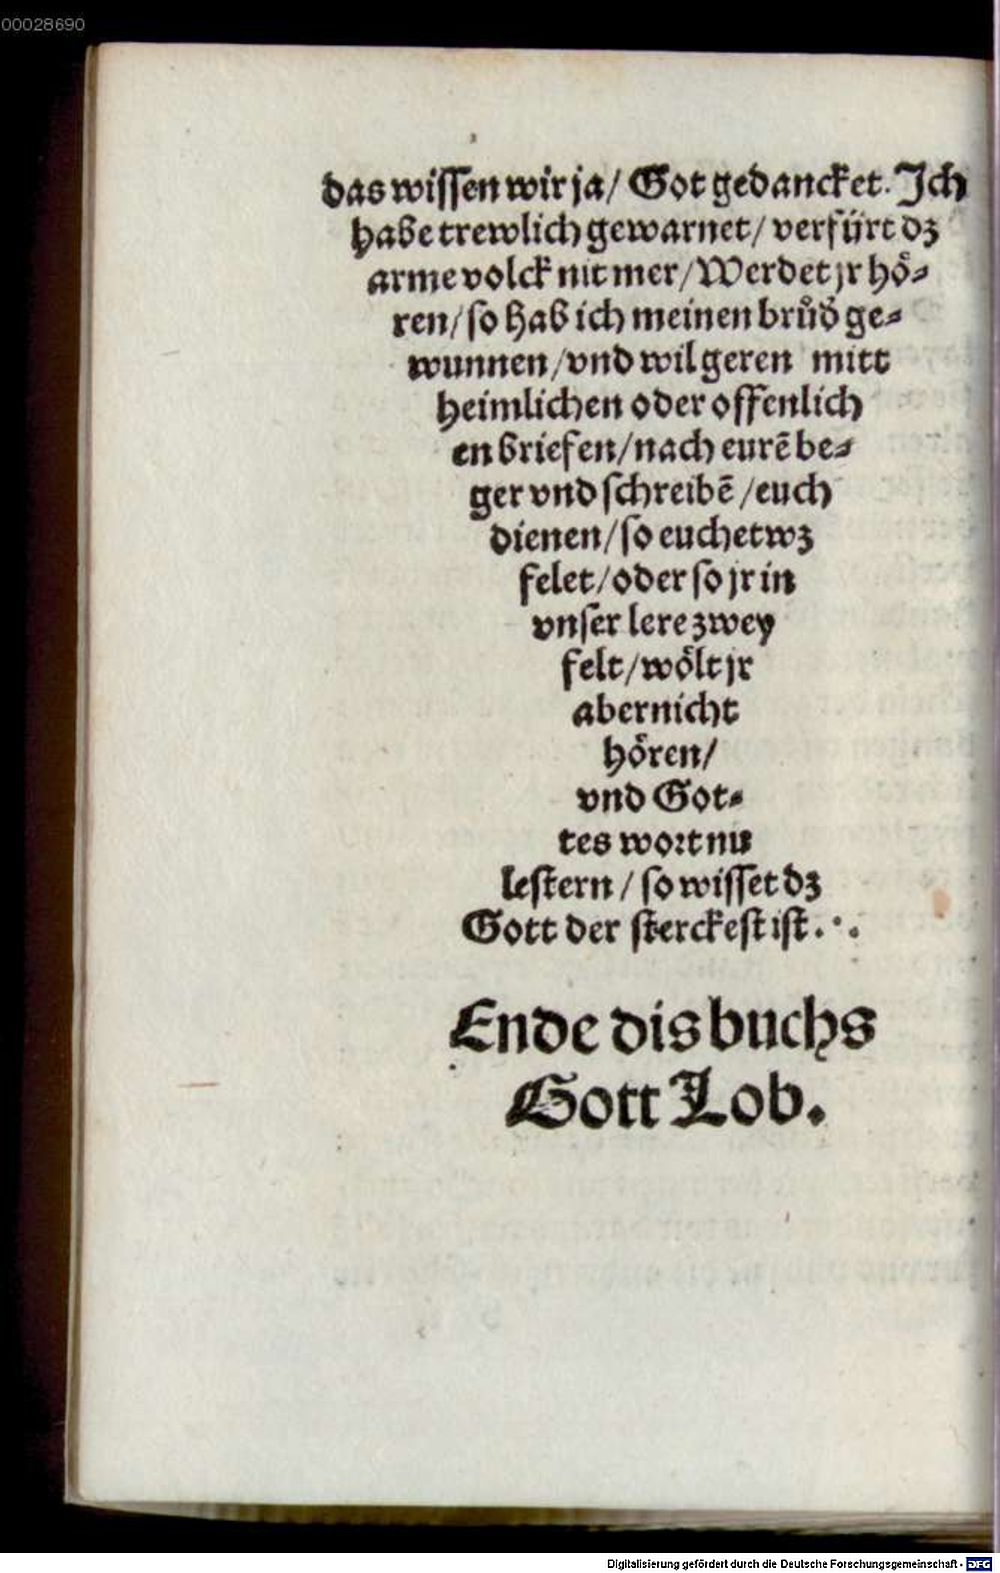 00028690
das wissen wir ja/ Got gedancket. Jch
habe trewlich gewarnet/ verfürt dz
arme volck nit mer/ Werdet jr hoͤ⸗
ren/ so hab ich meinen bruͦd̕ ge⸗
wunnen/ vnd wil geren mitt
heimlichen oder offenlich
en briefen/ nach eurē be⸗
ger vnd schreibē/ euch
dienen/ so euch etwz
felet/ oder so jr in
vnser lere zwey
felt/ woͤlt jr
aber nicht
hoͤren/
vnd Got⸗
tes wort nu
lestern/ so wisset dz
Gott der sterckest ist.·.
Ende dis buchs
Gott Lob.
Digitalisierung gefördert durch die Deutsche Forschungsgemeinschaft - DFG